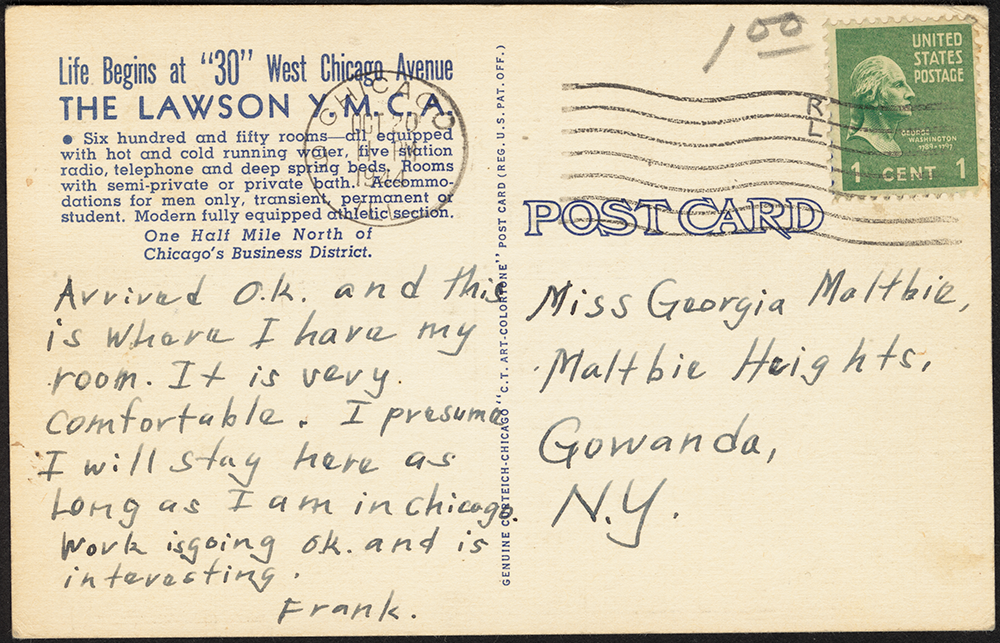 Life Begins at "30" West Chicago Avenue
THE LAWSON Y.M.C.A.
● Six hundred and fifty rooms—all equipped
with hot and cold running water, five station
radio, telephone and deep spring beds. Rooms
with semi-private or private bath. Accommo-
dations for men only, transient, permanent or
student. Modern fully equipped athletic section.
One Half Mile North of
Chicago's Business District.
CHICAGO
OCT 20
PM
ILL.
Arrived O.K. and this
is where I have my
room. It is very
comfortable. I presume
I will stay here as
long as I am in chicago.
Work is going ok. and is
interesting.
Frank.
GENUINE CURTEICH-CHICAGO "C.T. ART-COLORTONE" POST CARD (REG. U.S. PAT. OFF.)
1 00
R
L
UNITED
STATES
POSTAGE
GEORGE
WASHINGTON
1789-1797
1 CENT 1
POST CARD
Miss Georgia Maltbie,
Maltbie Heights,
Gowanda,
N.Y.